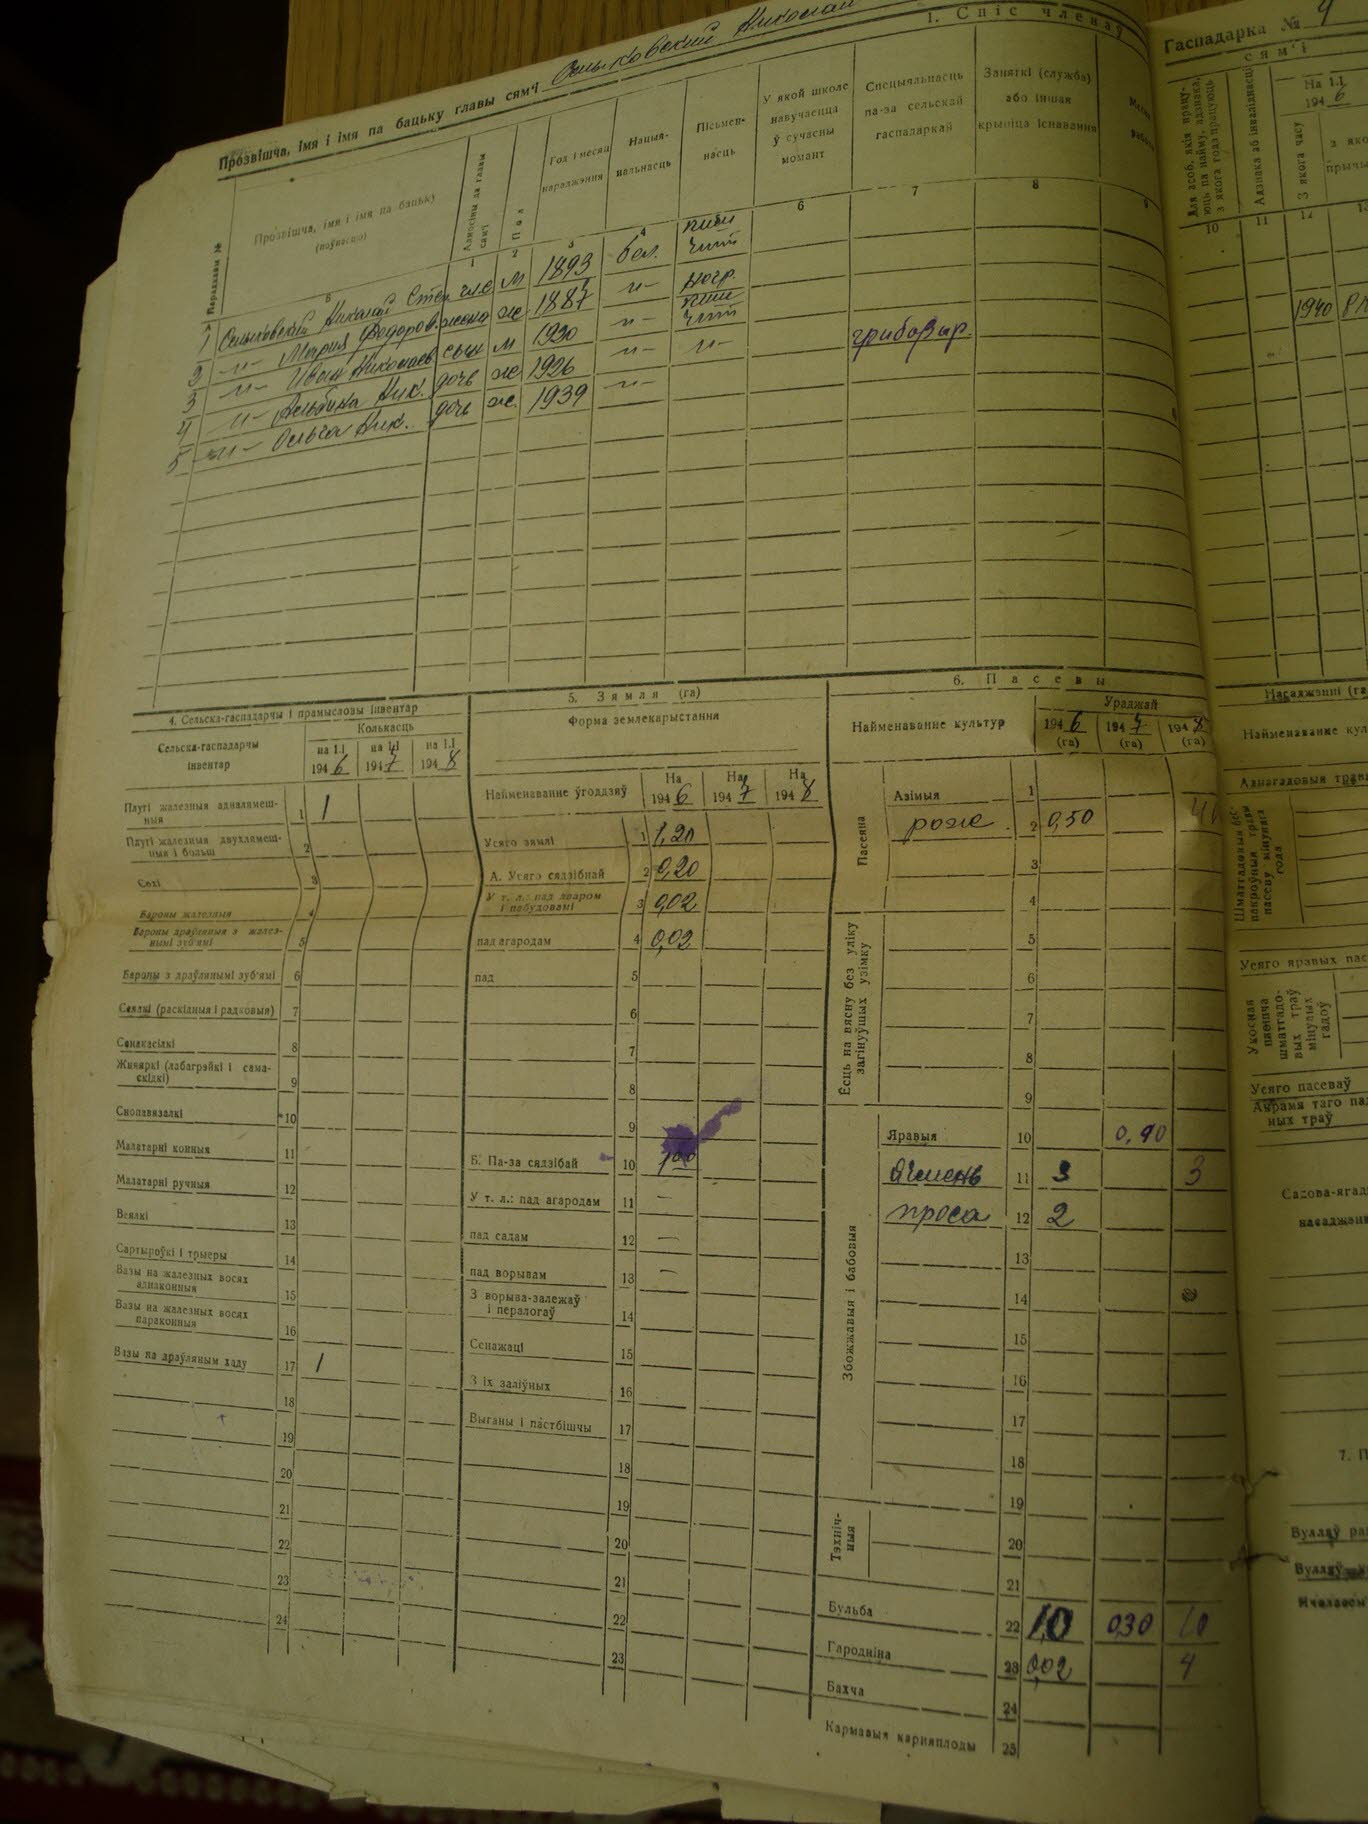 Прозвішча, імя і імя па бацьку главы сям'і
Николай
1. Спіс членаў
Парадкавы №
Прозвішча, імя і імя па бацьку
(поўнасцю)
Адносіны да главы сям'і
Пол
Год і месяц нараджэння
Нацыянальнасць
Пісьменнасць
У якой школе навучаецца ў сучасны момант
Спецыяльнасць па-за сельскай гаспадаркай
Заняткі (служба) або іншая крыніца існавання
Б 1 2 3 4 5 6 7 8 9
1 Николай м 1893 бел.
2 -"- Мария Федоров. жена ж 1887 -"-
3 -"- Иван Николаев сын м 1930 -"-
4 -"- Альбина Ник. дочь ж 1926 -"- -"-
5 -"- Ольга Ник. дочь ж. 1939 -"-
4. Сельска-гаспадарчы і прамысловы інвентар
Сельска-гаспадарчы інвентар
Колькасць
на 1.I 1946
на 1.I 1947
на 1.I 1948
Плугі жалезныя аднаямеш-
ныя 1 1
Плугі жалезныя двухлямеш-
ныя і больш 2
Сохі 3
Бароны жалезныя 4
Бароны драўляныя з жалез-
нымі зуб'ямі 5
Бароны з драўлянымі зуб'ямі 6
Сеялкі (раскідныя і радковыя) 7
Сенакасілкі 8
Жняяркі (лабагрэйкі і сама-
скідкі) 9
Снопавязалкі 10
Малатарні конныя 11
Малатарні ручныя 12
Веялкі 13
Сартыроўкі і трыеры 14
Вазы на жалезных восях
аднаконныя 15
Вазы на жалезных восях
параконныя 16
Вазы на драўляным хаду 17 1
18
19
20
21
22
23
24
5. Зямля (га)
Форма землекарыстання
Найменаванне ўгоддзяў
На 1946
На 1947
На 1948
Усяго зямлі 1 1,20
А. Усяго сядзібнай 2 0,20
У т. л.: пад дваром
і пабудовамі 3 0,02
пад агародам 4 0,02
пад 5
6
7
8
9
Б. Па-за сядзібай 10 1,00
У т. л.: пад агародам 11 —
пад садам 12 —
пад ворывам 13 —
З ворыва-залежаў
і пералогаў 14
Сенажаці 15
З іх заліўных 16
Выганы і пастбішчы 17
18
19
20
21
22
23
6. Пасевы
Найменаванне культур
Ураджай
1946 (га)
1947 (га)
1948 (га)
Пасеяна
Ёсць на вясну без уліку загінуўшых узімку
Азімыя 1
рожь 2 0,50
3
4
5
6
7
8
9
Збожжавыя і бабовыя
Яравыя 10 0,90
ячмень 11 3 3
проса 12 2
13
14
15
16
17
18
19
Тэхніч-
ныя
20
21
Бульба 22 10 0,30 10
Гародніна 23 0,02 4
Бахча 24
Кармавыя карняплоды 25
Гаспадарка № 4
сям'і
Для асоб, якія працу-
юць па найму, адзнака,
з якога года працуюць
Адзнака аб інваліднасці
На 1.I 1946
З якога часу
10 11 12
1940
Насаджэнні (га
Найменаванне кул
Аднагадовыя трав
Шматгадовыя бес-
пакроўныя травы
пасеву мінулага
года
Усяго яравых пас
Укосная
плошча
шматгадо-
вых траў
мінулых
гадоў
Усяго пасеваў
Акрамя таго пад
ных траў
Садова-ягад
насаджэн
7. П
Вуллёў ра